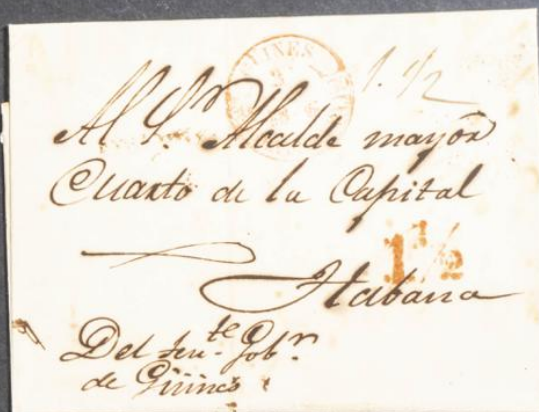 GUINES
1. 1/2
Al Sr. Alcalde mayor
Cuarto de la Capital
1 1/2
Habana
Del Tente. Gobr.
de Güines